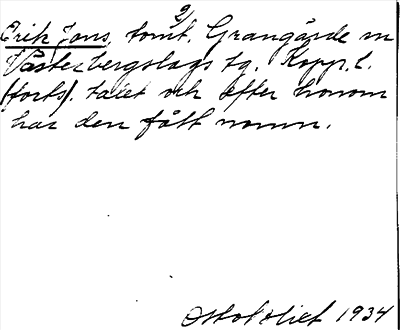 2)
Erik Jons, tomt. Grangärde sn
Västerbergslags tg. Kopp. l.
(forts). talet och efter honom
har den fått namn.
1934